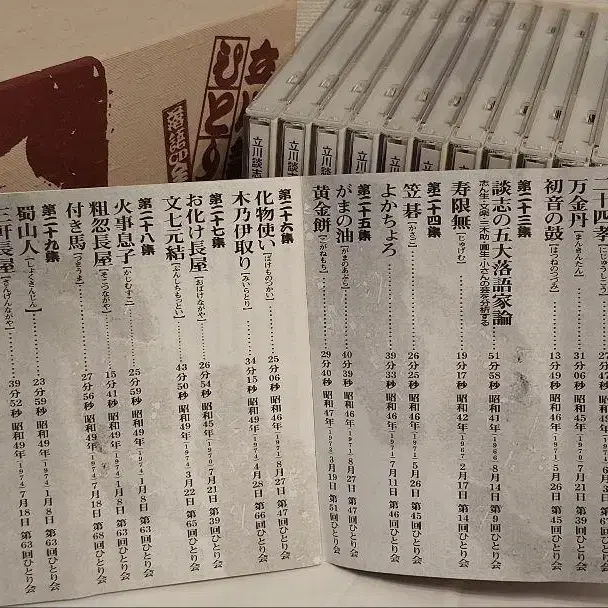 立川談志
ひとり
落語の会
立川談志
立川談志
立川談志
立川談志
二十四孝[にじゅうしこう]
万金丹[まんきんたん]………31分06秒 昭和45年[1970] 7月21日 第39回ひとり会
初音の鼓[はつねのつづみ]………13分49秒 昭和46年[1971] 5月26日 第45回ひとり会
第二十三集
談志の五大落語家論………51分58秒 昭和41年[1966] 8月14日 第9回ひとり会
志ん生・文楽・三木助・圓生・小さんの芸を分析する
寿限無[じゅげむ]………19分17秒 昭和42年[1967] 2月17日 第14回ひとり会
第二十四集
笠碁[かさご]………26分25秒 昭和46年[1971] 5月26日 第45回ひとり会
よかちょろ………39分33秒 昭和46年[1971] 7月11日 第46回ひとり会
第二十五集
がまの油[がまのあぶら]………40分39秒 昭和46年[1971] 8月27日 第47回ひとり会
黄金餅[こがねもち]………29分40秒 昭和47年[1972] 3月19日 第51回ひとり会
第二十六集
化物使い[ばけものつかい]………25分06秒 昭和46年[1971] 8月27日 第47回ひとり会
木乃伊取り[みいらとり]………34分15秒 昭和49年[1974] 4月28日 第66回ひとり会
第二十七集
お化け長屋[おばけながや]………26分54秒 昭和45年[1970] 7月21日 第39回ひとり会
文七元結[ぶんしちもっとい]………43分50秒 昭和49年[1974] 3月22日 第65回ひとり会
第二十八集
火事息子[かじむすこ]………25分59秒 昭和49年[1974] 1月8日 第63回ひとり会
粗忽長屋[そこつながや]………15分41秒 昭和49年[1974] 1月8日 第63回ひとり会
付き馬[つきうま]………27分56秒 昭和49年[1974] 7月18日 第68回ひとり会
第二十九集
蜀山人[しょくさんじん]………23分59秒 昭和49年[1974] 1月8日 第63回ひとり会
三軒長屋[さんげんながや]………39分52秒 昭和49年[1974] 7月18日 第63回ひとり会